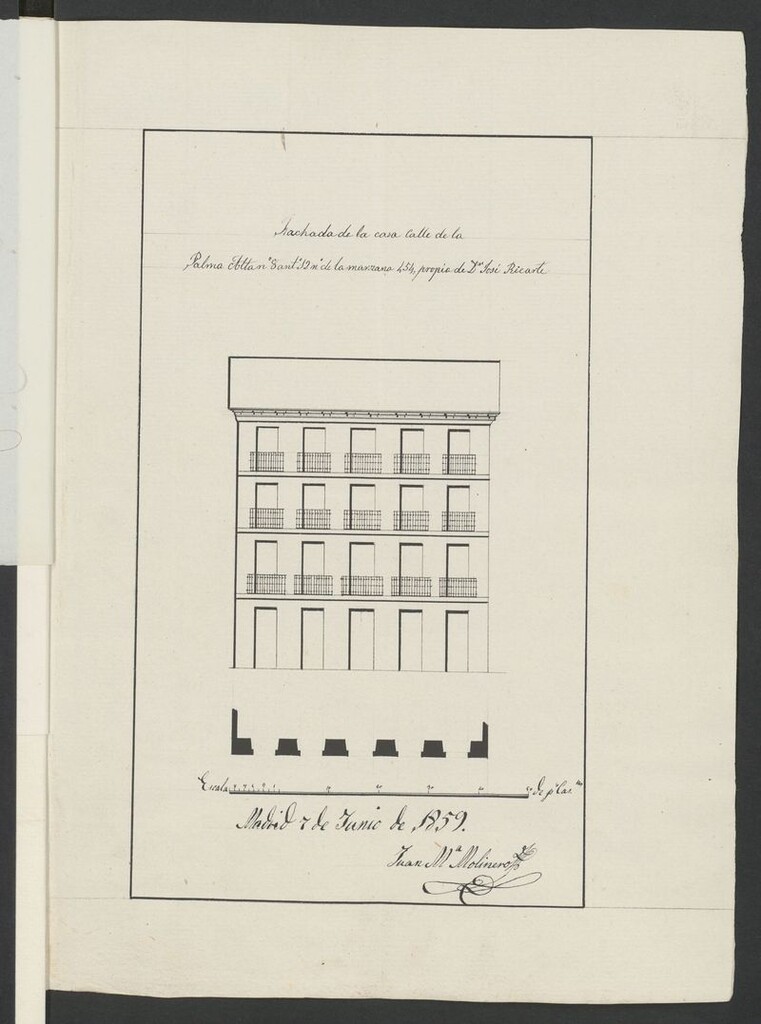 Fachada de la casa Calle de la
Palma Alta nº 8 antº 12 nº de la manzana 454, propia de Dn José Ricarte
Escala de p. Cas.
Madrid 7 de Junio de 1859.
Juan Mª Molinero